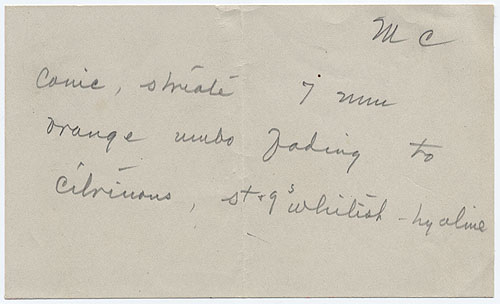 M C
Conic, striate 7 mm
orange umbo fading to
citrinous, st & g s whitish - hyaline